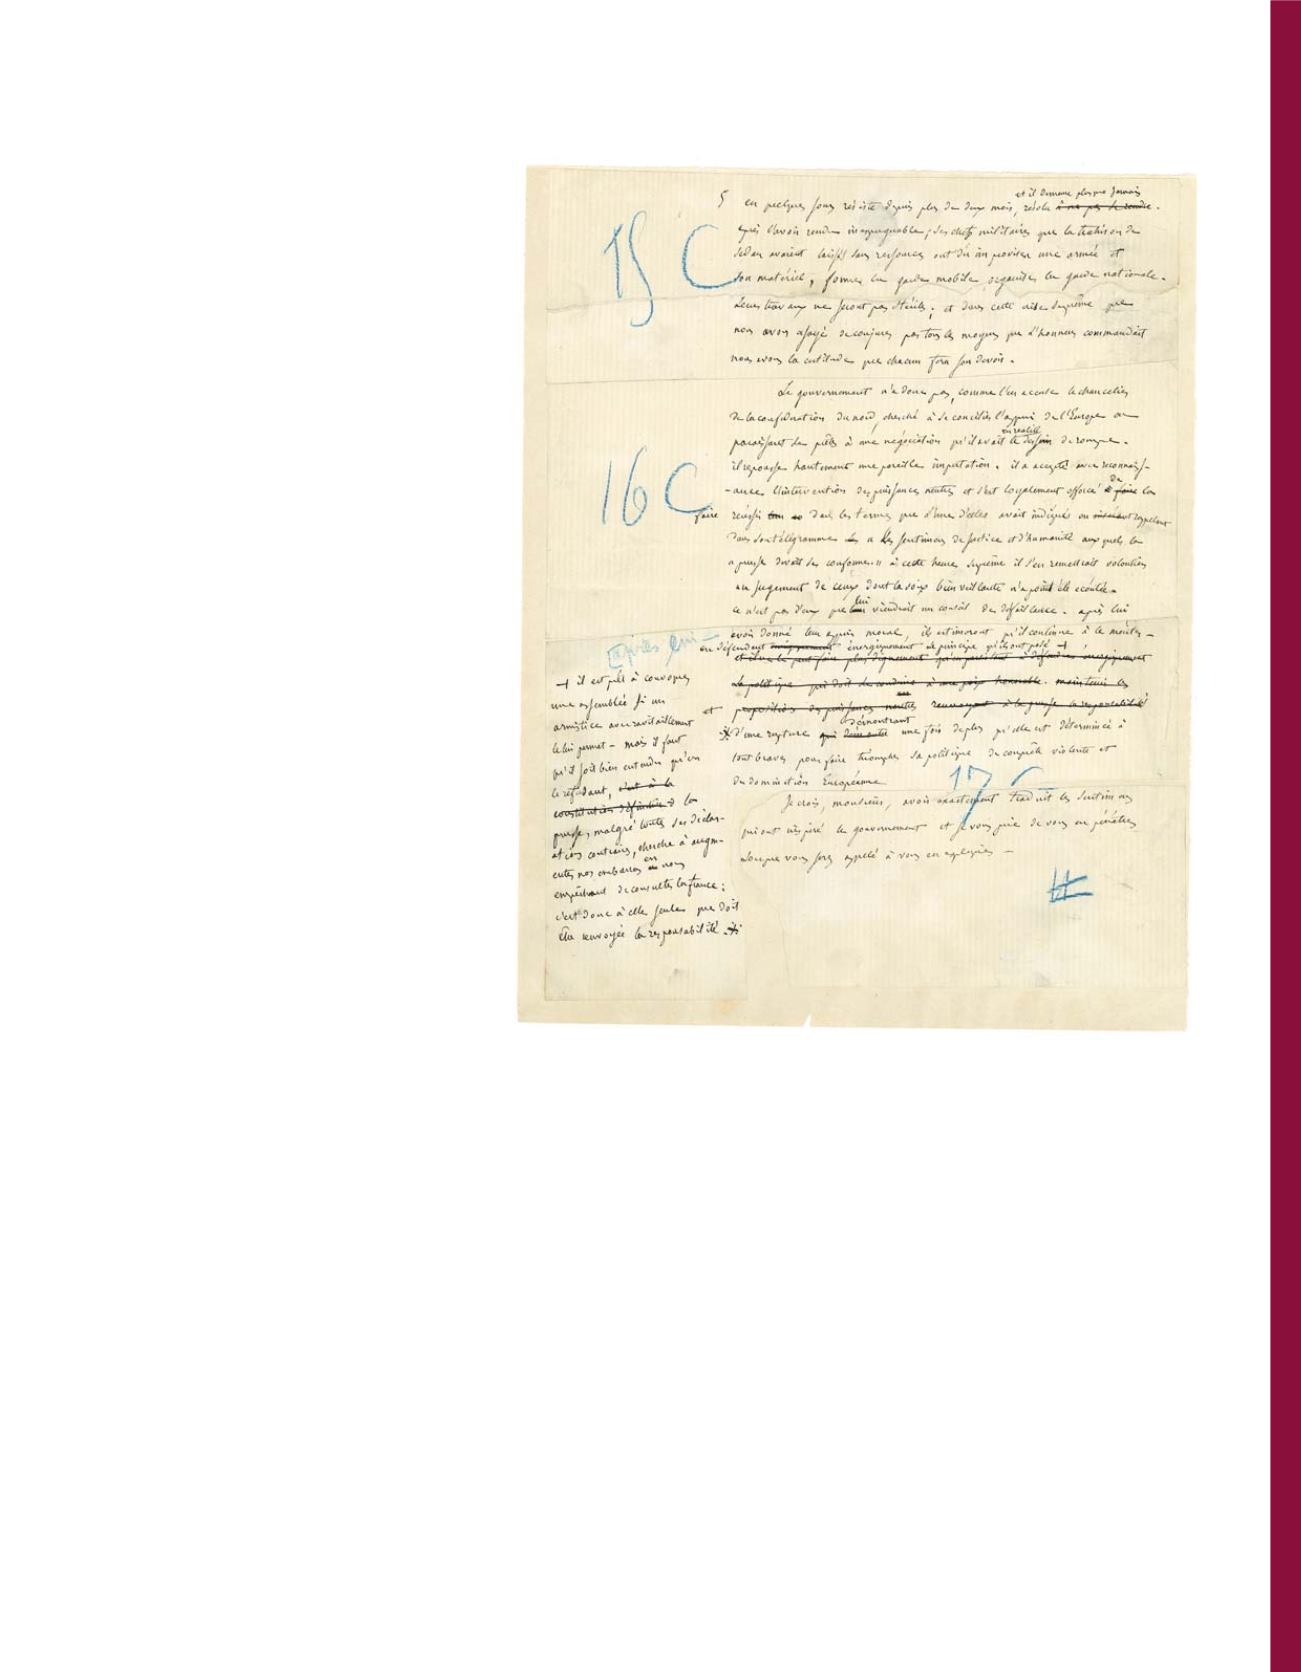 et il demeure plus que jamais
5 en quelques jours résiste depuis plus de deux mois, résolu à ne pas se rendre.
après l'avoir rendu inexpugnable, ses chefs militaires que la trahison de
Sedan avaient laissés sans ressources ont dû improviser une armée et
15 C
son matériel, former la garde mobile organiser la garde nationale.
Leurs travaux ne seront pas stériles, et dans cette crise suprême que
nous avons essayé de conjurer par tous les moyens que l'honneur commandait
nous avons la certitude que chacun fera son devoir.
Le gouvernement n'a donc pas, comme l'en accuse le chancelier
de la confédération du nord, cherché à se concilier l'appui de l'Europe en
paraissant se prêter à une négociation qu'il avait en réalité le dessein de rompre.
il repousse hautement une pareille imputation. il a accepté avec reconnais-
-sance l'intervention des puissances neutres et s'est loyalement efforcé de faire la
16 C
faire réussir dans les termes que l'une d'elles avait indiqués en rappelant
dans son télégramme « les sentimens de justice et d'humanité auxquels la
prusse devait se conformer. » à cette heure suprême il s'en remettrait volontiers
au jugement de ceux dont la voix bienveillante n'a point été écoutée.
ce n'est pas d'eux que lui viendrait un conseil de défaillance. après lui
après lui —
avoir donné leur appui moral, ils estimeront qu'il continue à le mériter
en défendant énergiquement le principe qu'ils ont posé +
la politique qui doit la conduire à une paix honorable. maintenir les
et propositions des puissances neutres renvoyant à la prusse la responsabilité
d'une rupture démontrant une fois de plus qu'elle est déterminée à
tout braver pour faire triompher sa politique de conquête violente et
de domination Européenne
17
Je crois, monsieur, avoir exactement traduit les sentimens
qui ont inspiré le gouvernement et je vous prie de vous en pénétrer
lorsque vous serez appelé à vous en expliquer —
+ il est prêt à convoquer
une assemblée si un
armistice avec ravitaillement
le lui permet — mais il faut
qu'il soit bien entendu qu'en
le refusant, c'est à la
la
prusse, malgré toutes ses déclar-
ations contraires, cherche à augm-
enter nos embarras en nous
empêchant de consulter la france ;
c'est donc à elle seule que doit
être renvoyée la responsabilité